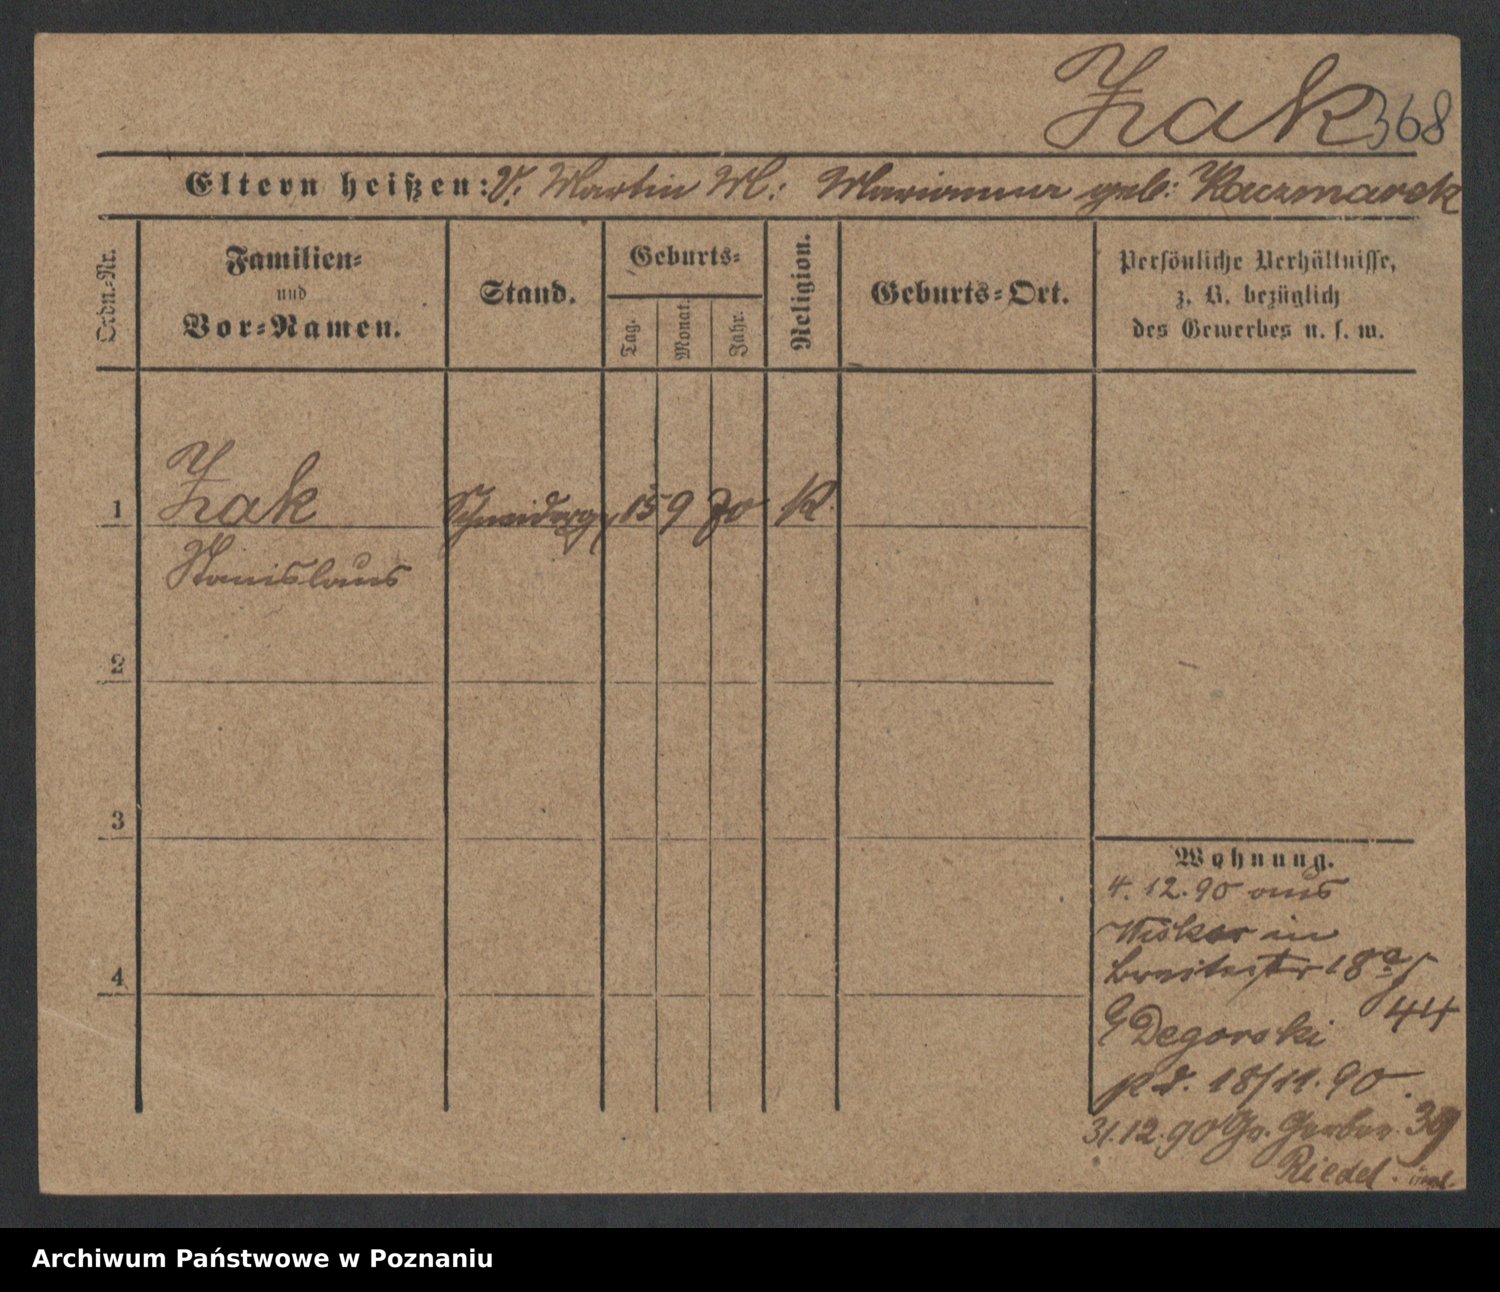 Zak 368
Eltern heißen: V. Martin M: Marianna geb: Kaczmarek
Ordn.-Nr.
Familien-
und
Vor-Namen.
Stand.
Geburts-
Tag.
Monat.
Jahr.
Religion.
Geburts-Ort.
Persönliche Verhältnisse,
z. B. bezüglich
des Gewerbes u. s. w.
1 Zak Schneiderg. 15 9 70 K.
Stanislaus
2
3
4
Wohnung.
4. 12. 90 aus
in
Breitestr 18a
44
Degorski
18/11. 90.
31.12.90 Gr. Gerber 39
Riedel.
Archiwum Państwowe w Poznaniu